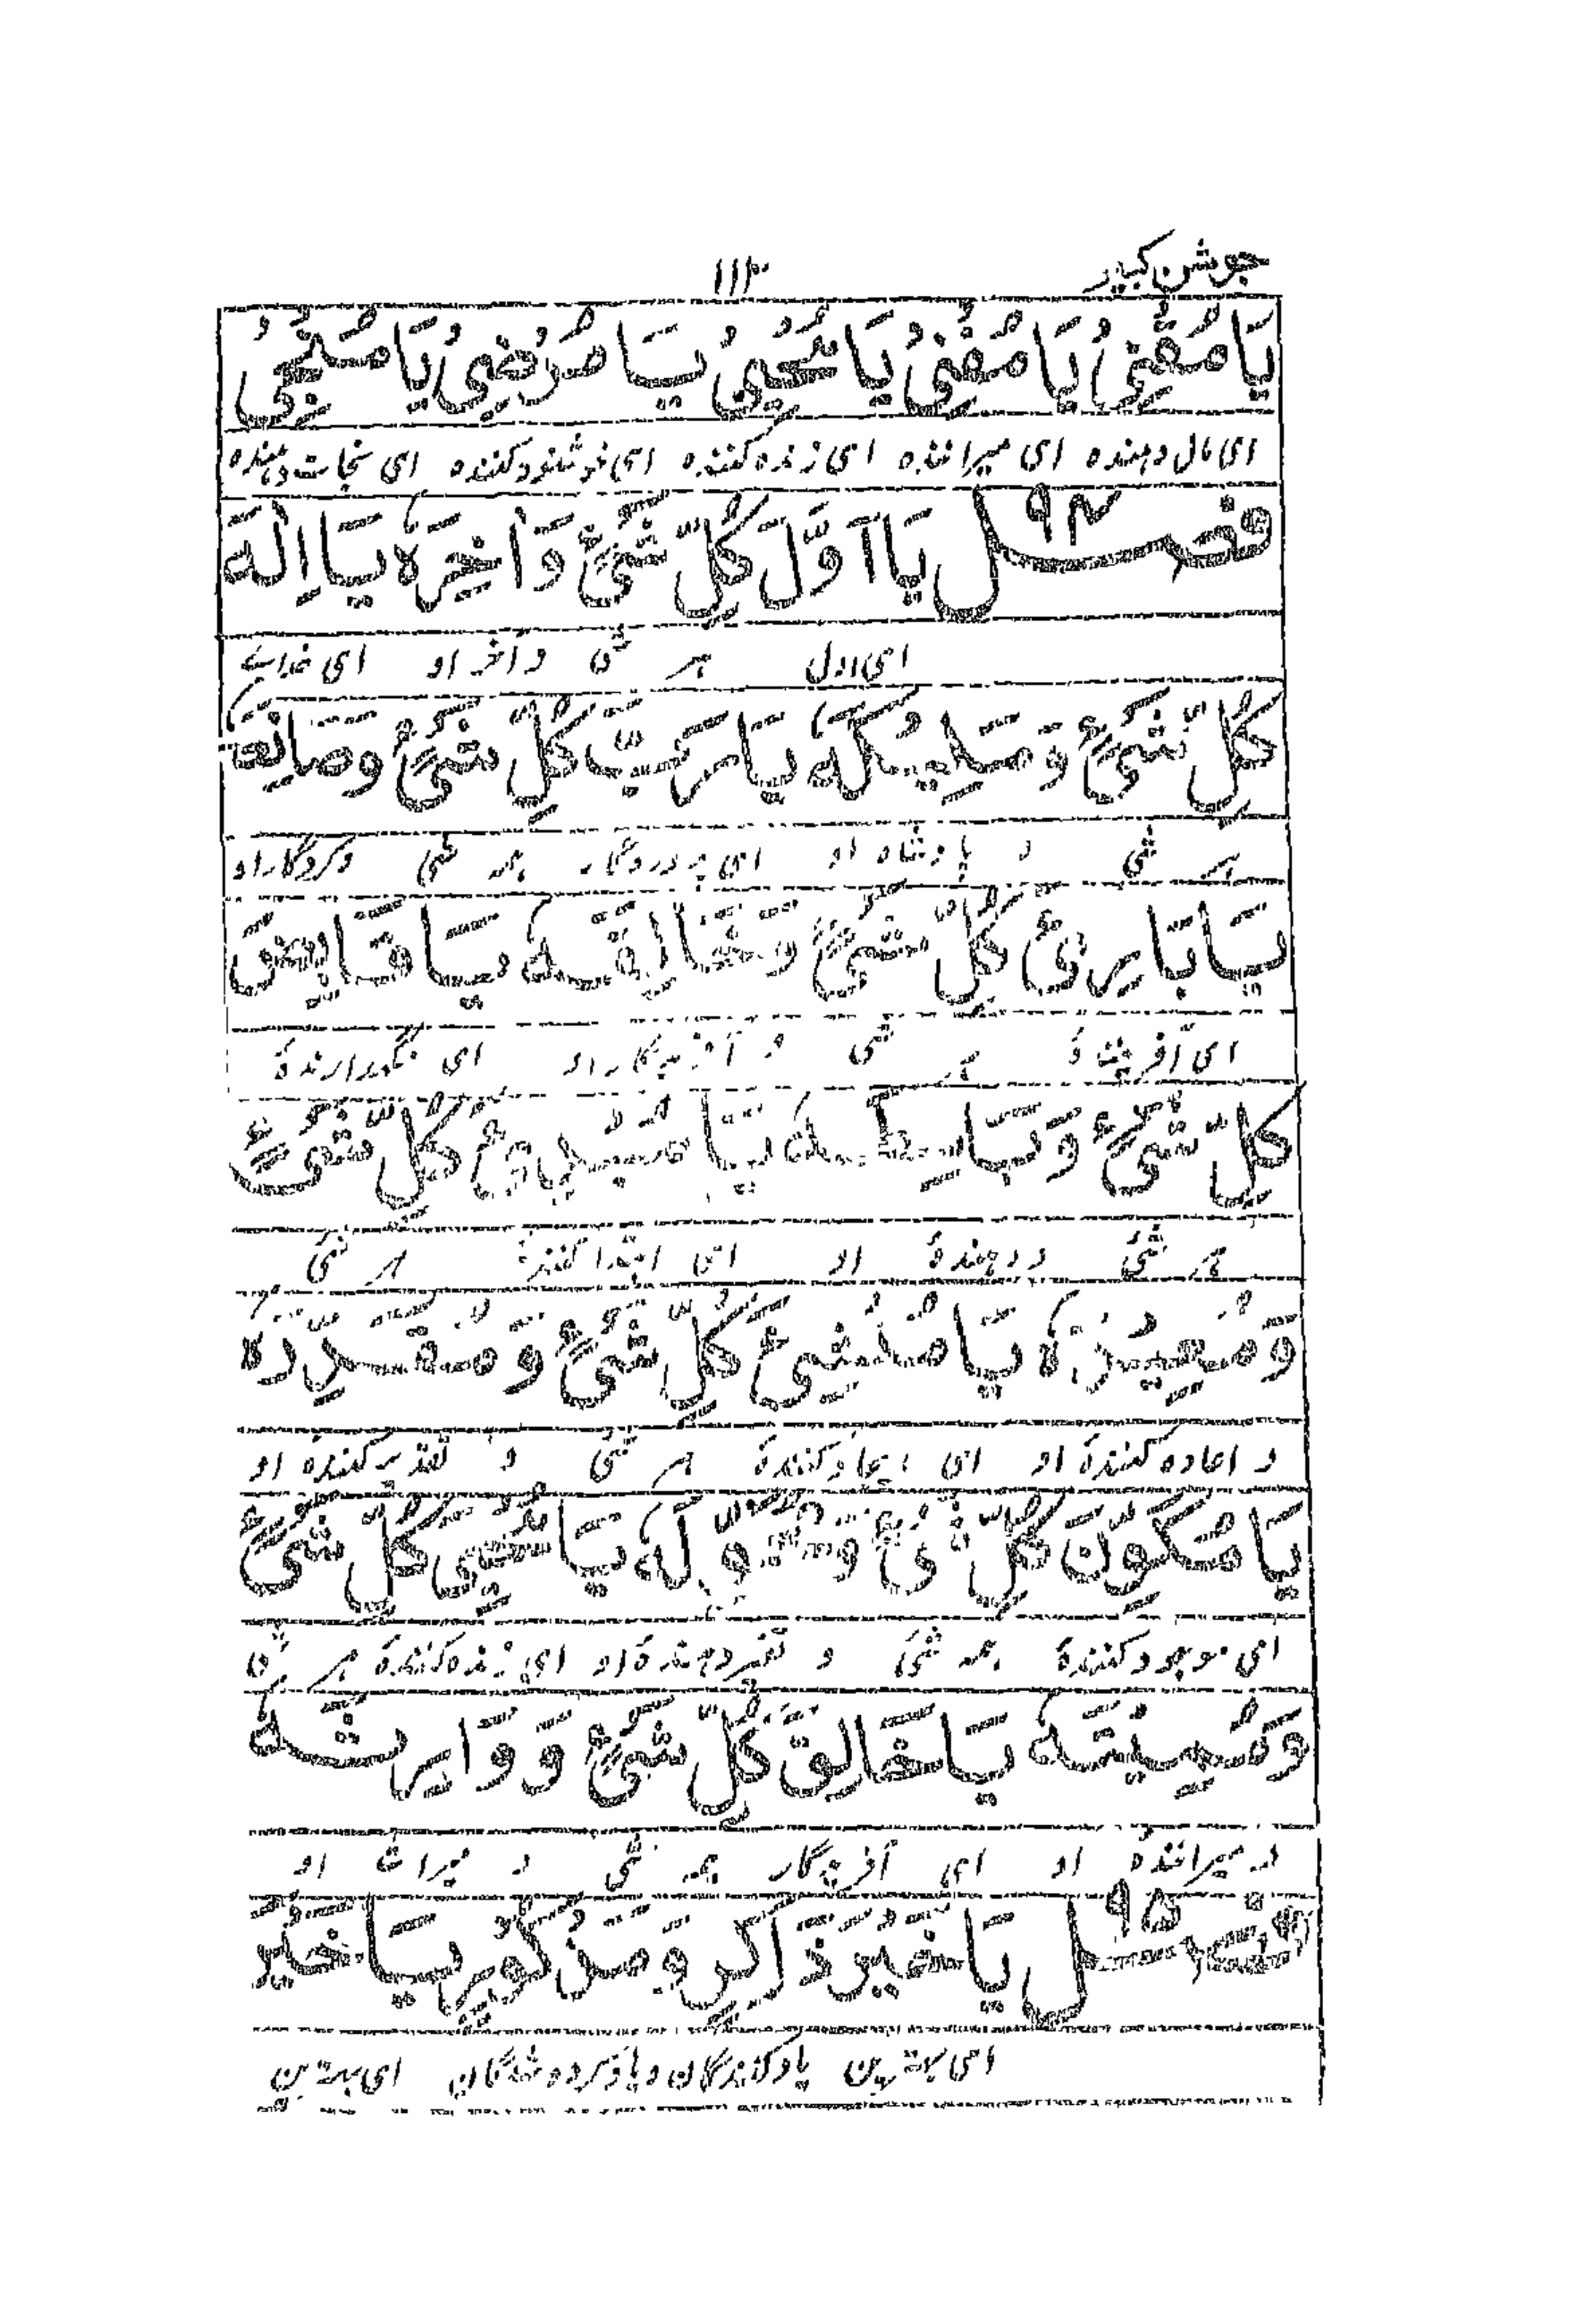 جوشن كبير
١١٣
يَا مُقْنِىُ يَا مُفْنِىُ يَا مُحْيِىُ يَا مُرْضِىُ يَا مُنْجِىُ
ای مال دهنده ای میراننده ای زنده کننده ای خوشنود کننده ای نجات دهنده
فصل ٩٤ يَا اَوَّلَ كُلِّ شَىْءٍ وَ اٰخِرَهُ يَا اِلٰهَ
ای اول هر شی و آخر او ای خدای
كُلِّ شَىْءٍ وَ مَلِيْكَهُ يَا رَبَّ كُلِّ شَىْءٍ وَ صَانِعَهُ
هر شی و پادشاه او ای پروردگار همه شی و کردگار او
يَا بَارِئَ كُلِّ شَىْءٍ وَ خَالِقَهُ يَا قَابِضَ
ای آفریننده هر شی و آفریدگار او ای نگهدارندهٔ
كُلِّ شَىْءٍ وَ بَاسِطَهُ يَا مُبْدِئَ كُلِّ شَىْءٍ
هر شی و دهندهٔ او ای ابتدا کنندهٔ هر شی
وَ مُعِيْدَهُ يَا مُنْشِئَ كُلِّ شَىْءٍ وَ مُقَدِّرَهُ
و اعاده کنندهٔ او ای ایجاد کنندهٔ هر شی و تقدیر کنندهٔ او
يَا مُكَوِّنَ كُلِّ شَىْءٍ وَ مُحَوِّلَهُ يَا مُحْيِىَ كُلِّ شَىْءٍ
ای موجود کنندهٔ همه شی و تغیر دهندهٔ او ای زنده کنندهٔ هر شی
وَ مُمِيْتَهُ يَا خَالِقَ كُلِّ شَىْءٍ وَ وَارِثَهُ
و میرانندهٔ او ای آفریدگار همه شی و میراث او
فصل ٩٥ يَا خَيْرَ ذَاكِرٍ وَ مَذْكُوْرٍ يَا خَيْرَ
ای بهترین یاد کنندگان و یاد کرده شدگان ای بهترین